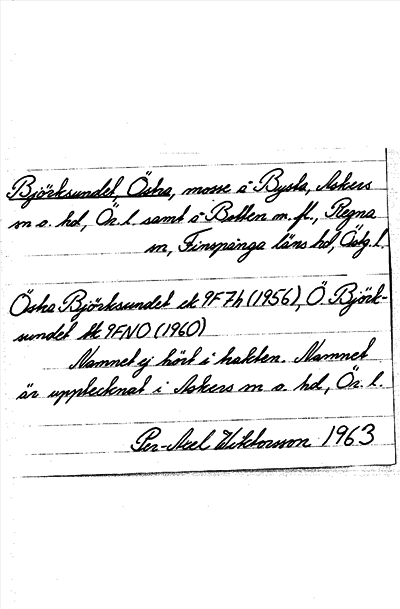 Björksundet, Östra, mosse å Bysta, Askers
sn o. hd, Ör. l. samt å Botten m. fl., Regna
sn, Finspånga läns hd, Östg. l.
Östra Björksundet ek 9F7h (1956), Ö Björk-
sundet tk 9FNO (1960)
Namnet ej hört i trakten. Namnet
är upptecknat i Askers sn o. hd, Ör. l.
Per-Axel Wiktorsson 1963